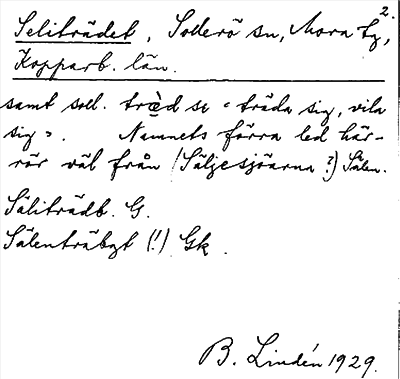 2.
Seliträdet, Sollerö sn, Mora tg,
Kopparb. län.
samt soll. träd se "träda sig, vila
sig". Namnets förra led här-
rör väl från (Säljesjöarna?) Sälen.
Säliträdb. G.
Sälenträbgt (!) Gk.
B. Lindén 1929.